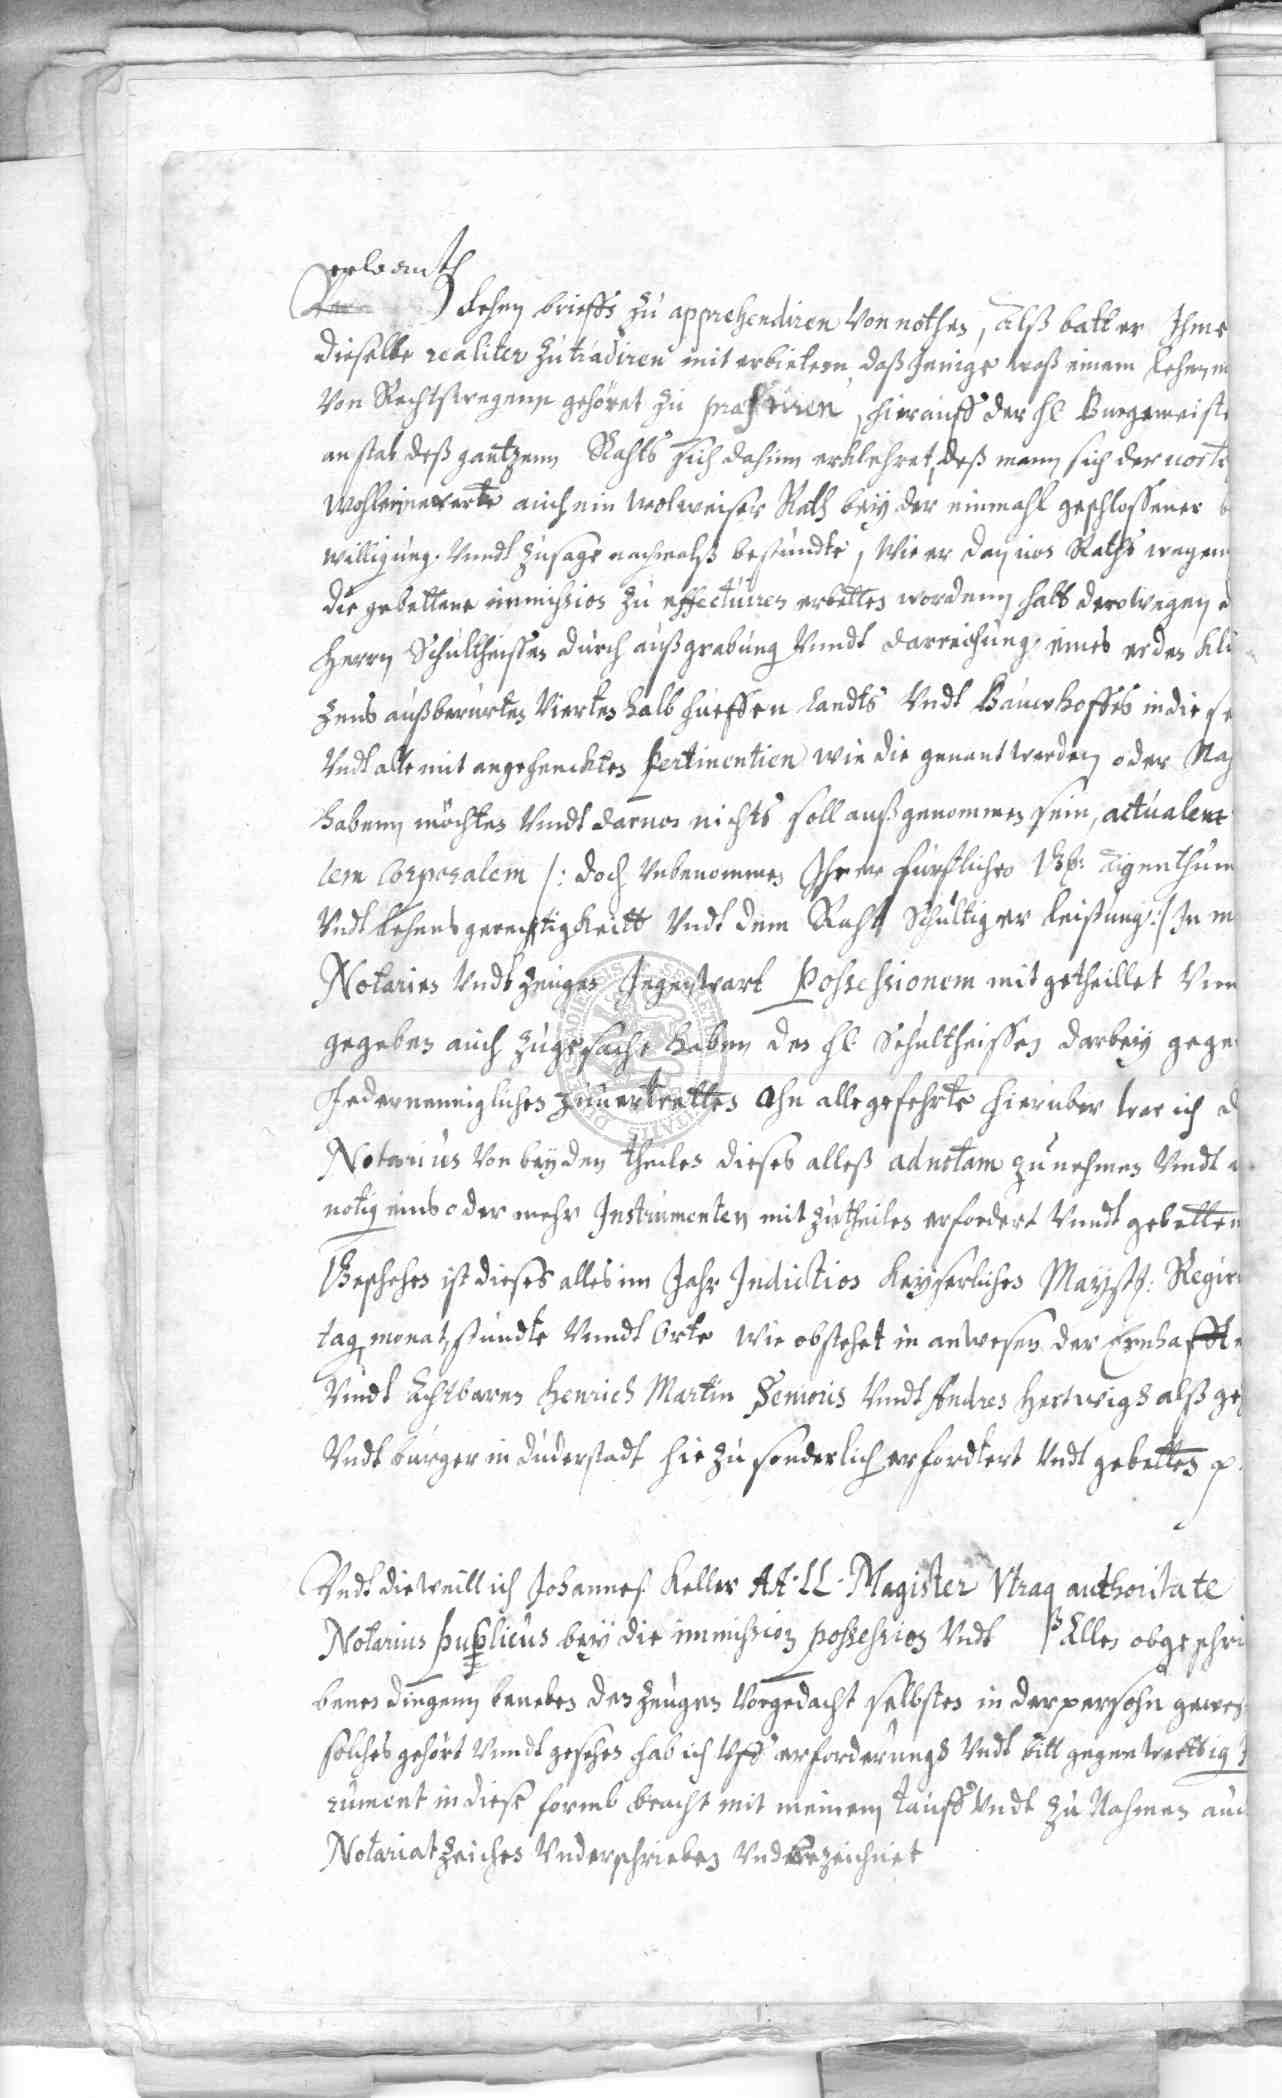 erlvanth
Lehen brieffs zu apprehendiren Von nothen, Alß batt er Ihme
dieselbe realiter zu tradiren mit erbietenn, daß Jenige waß einem Lehenm
Von Rechtßwegenn gehöret zu præstiren, hierauff der hl. Burgemeiste
anstat deß gantzenn Rahts sich dahinn erklehret, deß mann sich der
auch ein wolweiser Rath bey der einmahl geschlossener b
willigung. Vnndt zusage nachmalß bestundte, Wie er dan uor Raths wegenn
die gebettene immission zu effectuiren erbetten wordenn, hatt derowegen d
Herrn Schultheissen durch außgrabung Vnndt darreichung eines erden klu
zens auß berurten Vierten halb hueffen Landts Vndt Bauerhoffes in die se
Vndt alle mit angehenckten pertinentien wie die genant werden oder Nah
habenn möchten Vnndt daruon nichts soll außgenommen sein, actualem
tem Corporalem /: doch Vnbenommen Ihrer fürstlichen Gn: Eigenthum
Vndt Lehensgerechtigkeitt Vndt dem Raht Schultiger leistung :/ In m
Notarien Vndt Zeugen Jegenwart Possessionem mitgetheillet Vnn
gegeben auch zugesacht haben den hl. Schultheissen darbey gege
Jedermenniglichen zuuertretten Ohn alle gefehrte hieruber war ich d
Notarius Von beyden theilen dieses alleß ad notam zu nehmen Vnndt
notig eins oder mehr Instrumenten mit zutheilen erfordert Vnndt gebetten
Geschehen ist dieses alles im Jahr Indiction Keyserlichen Mayst: Regir
tag, monat, stundte Vnndt Orte Wie obstehet in anwesen der Ernhafften
Vnndt Achtbaren Henrich Martin Senioris Vnndt Andres Hertwigs alß ge
Vndt burger in Duderstadt hiezu sonderlich erfordtert Vndt gebetten p.
Vndt dieweill ich Johannes Keller AA. LL. Magister Vtraq authoritate
Notarius Puplicus bey die immission possession Vndt Allen obgeschri
benen dingenn beneben den Zeugen Vorgedacht selbsten in der persohn gewes
solches gehört Vnndt gesehen hab ich Vff erforderungs Vndt bitt gegenwerttig
rument in diese formb bracht mit meinem tauff Vndt zu Nahmen auc
Notariat zeichen Vnderschrieben Vnd bezeichnet